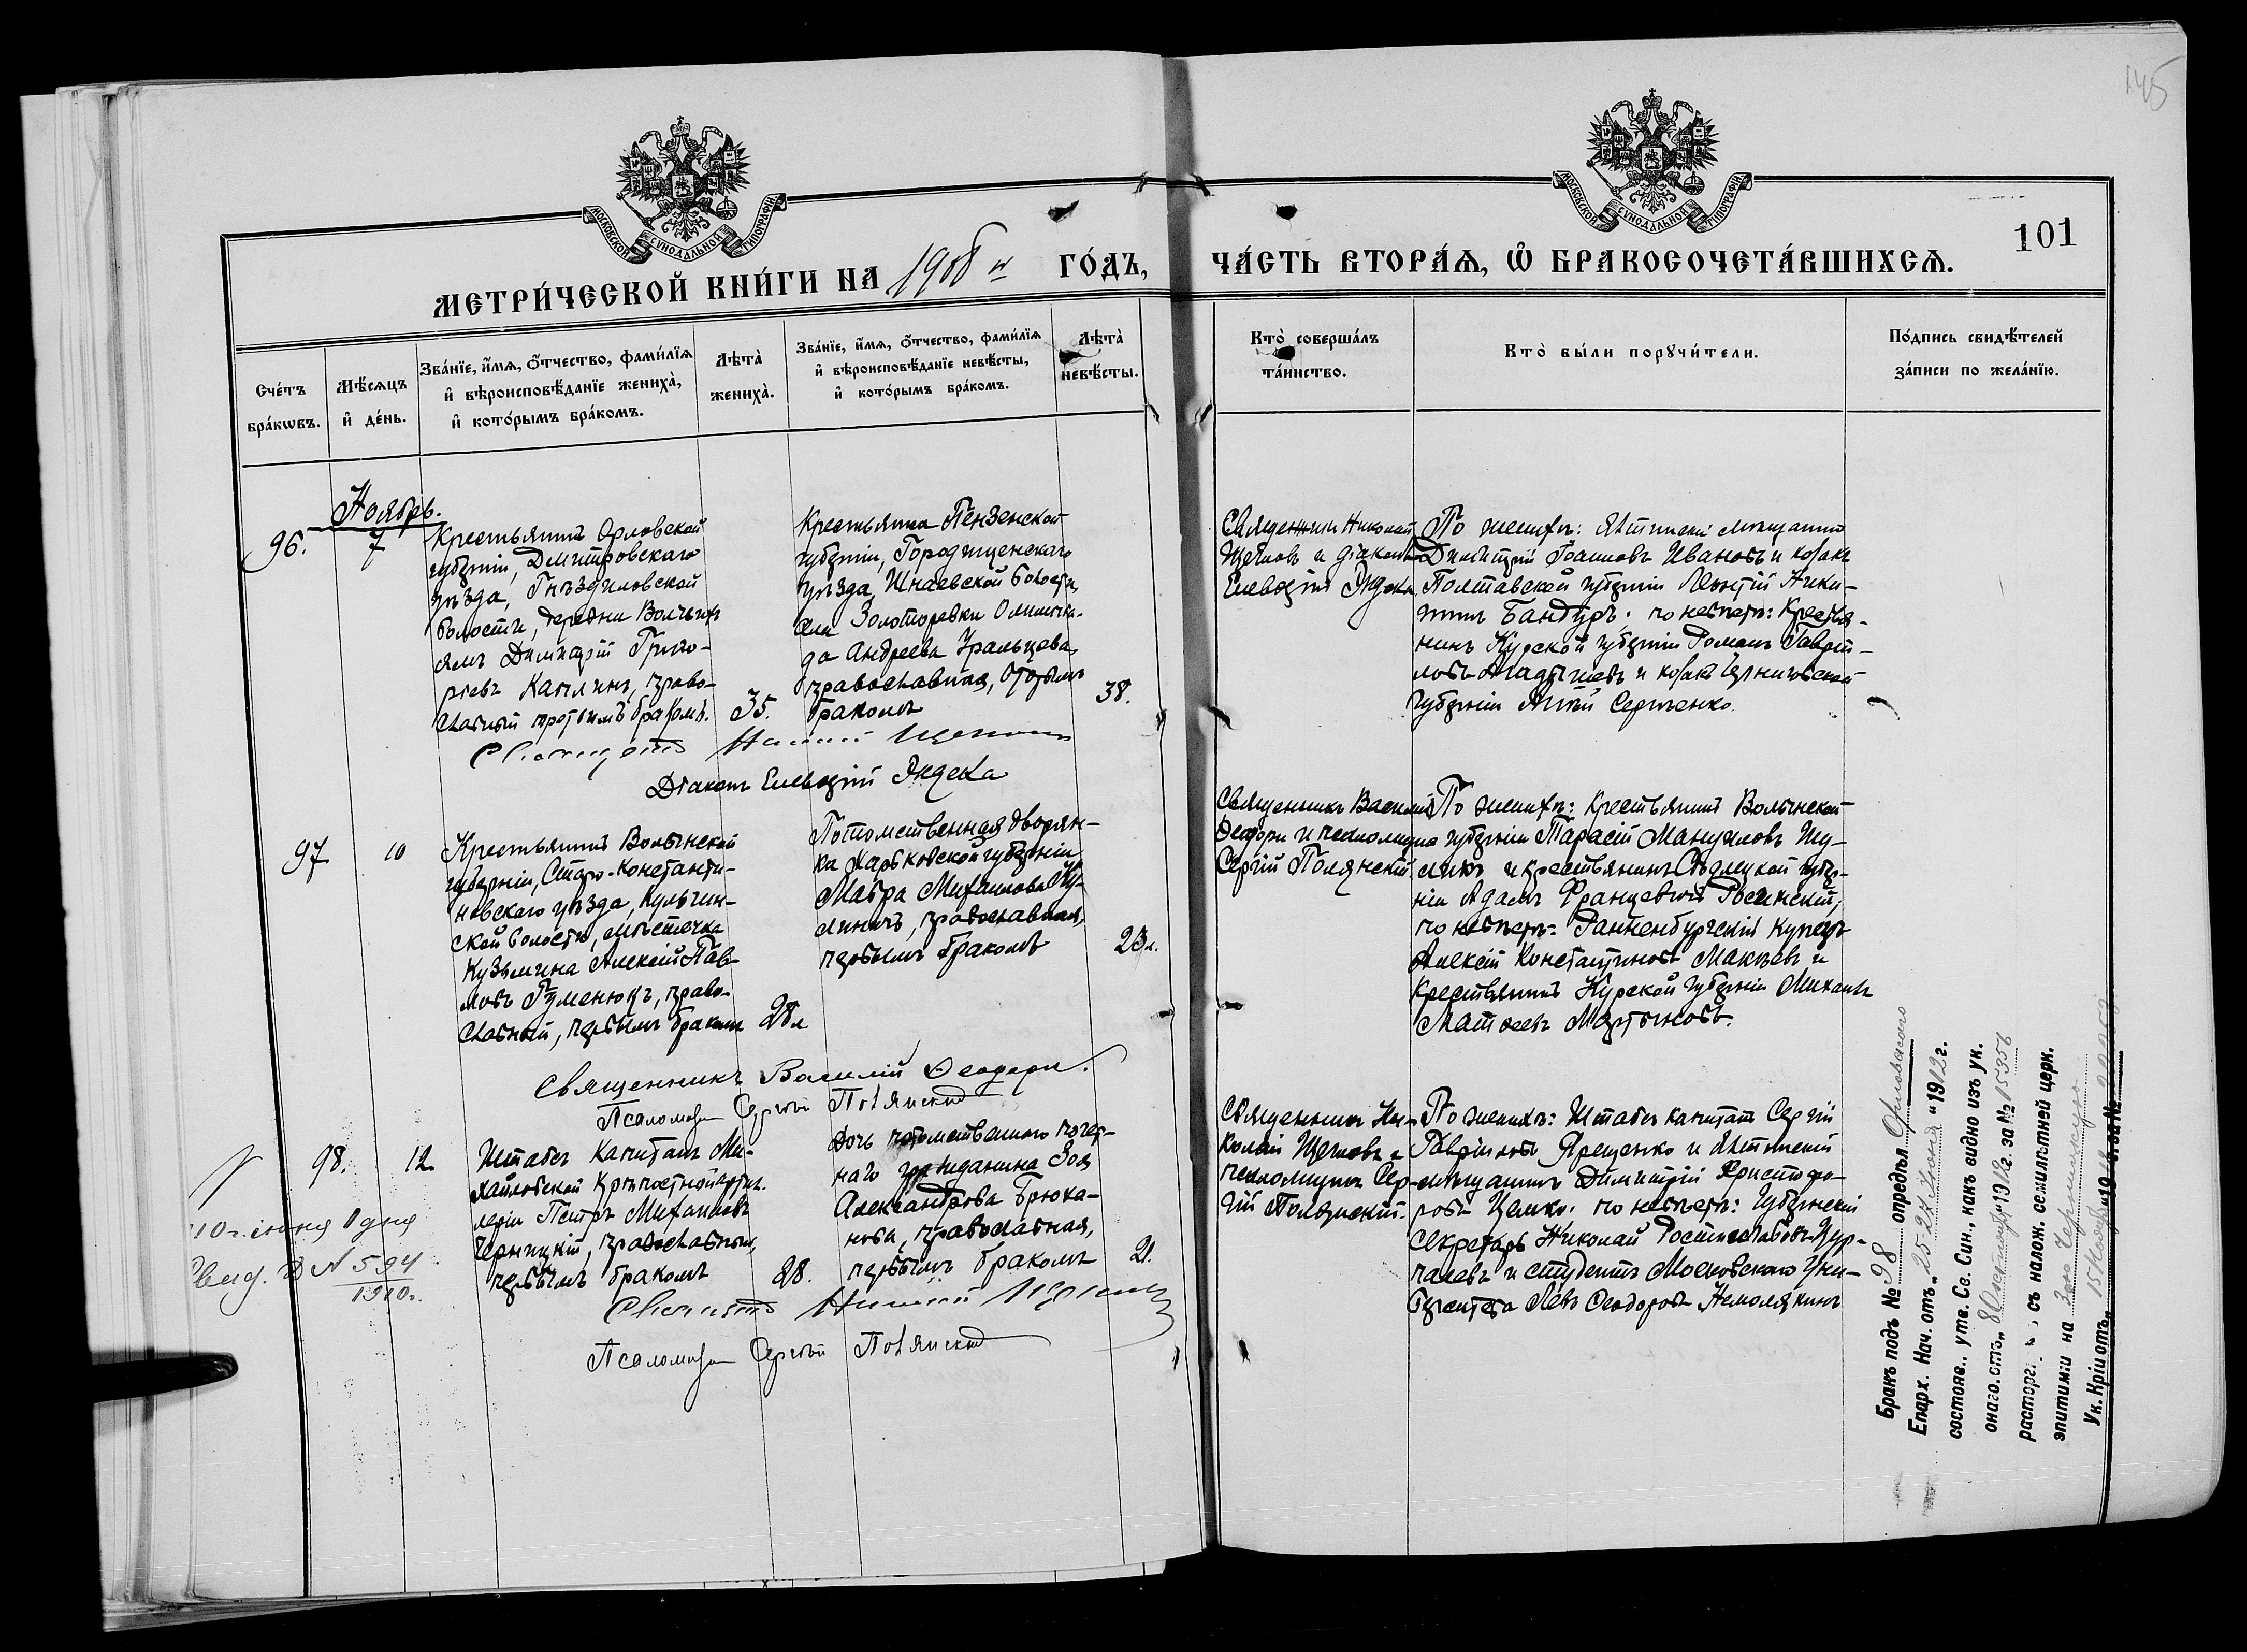 145
МОСКОВСКОЙ СУНОДАЛЬНОЙ ТИПОГРАФІИ
МОСКОВСКОЙ СУНОДАЛЬНОЙ ТИПОГРАФІИ
101
МЕТРИ́ЧЕСКОЙ КНИ́ГИ НА 1908 й ГО́ДЪ,
ЧА́СТЬ ВТОРА́Ѧ, Ѽ БРАКОСОЧЕТА́ВШИХСѦ.
Сче́тъ бра́кѡвъ.
Мѣ́сѧцъ и҆ де́нь.
Зва́нїе, и҆́мѧ, о҆́тчество, фами́лїѧ
и҆ вѣроисповѣ́данїе жениха̀,
и҆ кото́рымъ бра́комъ.
Лѣта̀ жениха̀.
Зва́нїе, и҆́мѧ, о҆́тчество, фами́лїѧ
и҆ вѣроисповѣ́данїе невѣ́сты,
и҆ кото́рымъ бра́комъ.
Лѣта̀ невѣ́сты.
Кто̀ соверша́лъ
та́инство.
Кто̀ бы́ли порꙋчи́тели.
По́дпись свидѣ́телей
за́писи по жела́нїю.
Ноябрь.
96.
7
Крестьянинъ Орловской
губерніи, Дмитровскаго
уѣзда, Гнѣздиловской
волости, деревни Волчьихъ
ямъ Димитрій Григо-
рьевъ Каплинъ, право-
славный третьимъ бракомъ.
35.
Крестьянка Пензенской
губерніи, Городищенскаго
уѣзда, Шнаевской волости,
села Золотаревки Олимпіа-
да Андреева Уральцева,
православная, вторымъ
бракомъ
38.
Священникъ Николай
Щегловъ и діаконъ
Елевферій Эндека
По женихѣ: Ялтинскій мѣщанинъ
Димитрій Іоанновъ Ивановъ и козакъ
Полтавской губерніи Леонтій Ники-
тинъ Бандуръ. по невѣстѣ: Крестья-
нинъ Курской губерніи Романъ Гаврі-
ловъ и козакъ Черниговской
губерніи Сергіенко.
Священникъ Николай Щегловъ
Діаконъ Елевферій Эндека
97
10
Крестьянинъ Волынской
губерніи, Старо-Константи-
новскаго уѣзда, Кульчин-
ской волости, мѣстечка
Кузьмина Алексій Пав-
ловъ Гуменюкъ, право-
славный, первымъ бракомъ
28 л
Потомственная дворян-
ка Харьковской губерніи
Мавра Михаилова Ку-
линичъ, православная,
первымъ бракомъ
23 л.
Священникъ Василій
Ѳеодори и псаломщикъ
Сергій Полянскій
По женихѣ: Крестьянинъ Волынской
губерніи Тарасій Мануиловъ Шу-
ликъ и крестьянинъ Сѣдлецкой губер-
ніи Адамъ Францевичъ
по невѣстѣ: Ранненбургскій Купецъ
Алексій Константиновъ Макѣевъ и
Крестьянинъ Курской губерніи Михаилъ
Матѳеевъ Мартыновъ.
Священникъ Василій Ѳеодори.
Псаломщикъ Сергій Полянскій
98.
12
Штабсъ Капитанъ Ми-
хайловской Крѣпостной артил-
леріи Петръ Михаиловъ
Черницкій, православный,
первымъ бракомъ
28.
Дочь потомственнаго почет-
наго гражданина Зоя
Александрова Брюха-
нова, православная,
первымъ бракомъ
21.
Священникъ Ни-
колай Щегловъ и
псаломщикъ Сер-
гій Полянскій.
По женихѣ: Штабсъ капитанъ Сергій
Гавріиловъ Ярещенко и Ялтинскій
мѣщанинъ Димитрій Христофо-
ровъ Цемко. по невѣстѣ: Губернскій
Секретарь Николай Ростиславовъ Цур-
палевъ и студентъ Московскаго Уни-
верситета Левъ Ѳеодоровъ Немолякинъ
10 г. іюня 1 дня
Свид. № 594
1910 г.
Священникъ Николай Щегловъ
Псаломщикъ Сергій Полянскій
Бракъ подъ № 98 опредѣл.
Епарх. Нач. отъ „25-27 Іюня" 1912 г.
состояв., утв. Св. Син., какъ видно изъ ук.
онаго, отъ „8 Октября" 1912 г. за № 15356
расторг., съ налож. семилѣтней церк.
эпитиміи на Зою Черницкую
Ук. Кріи отъ „15 Ноября" 1912 г. за №